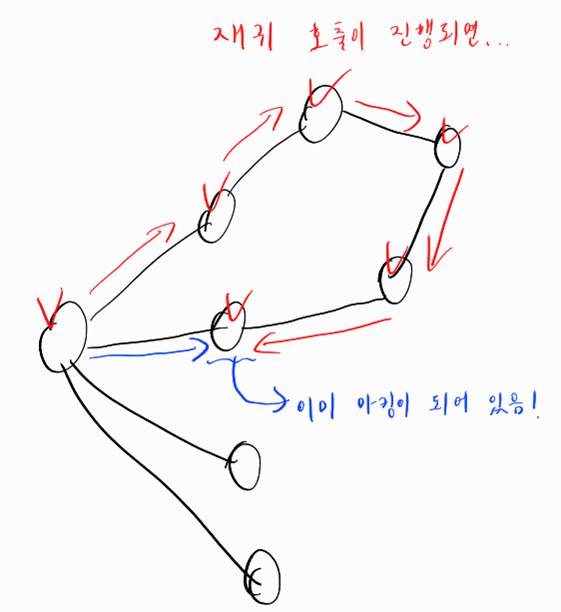 재귀 호출이 진행되면...
이미 마킹이 되어 있음!